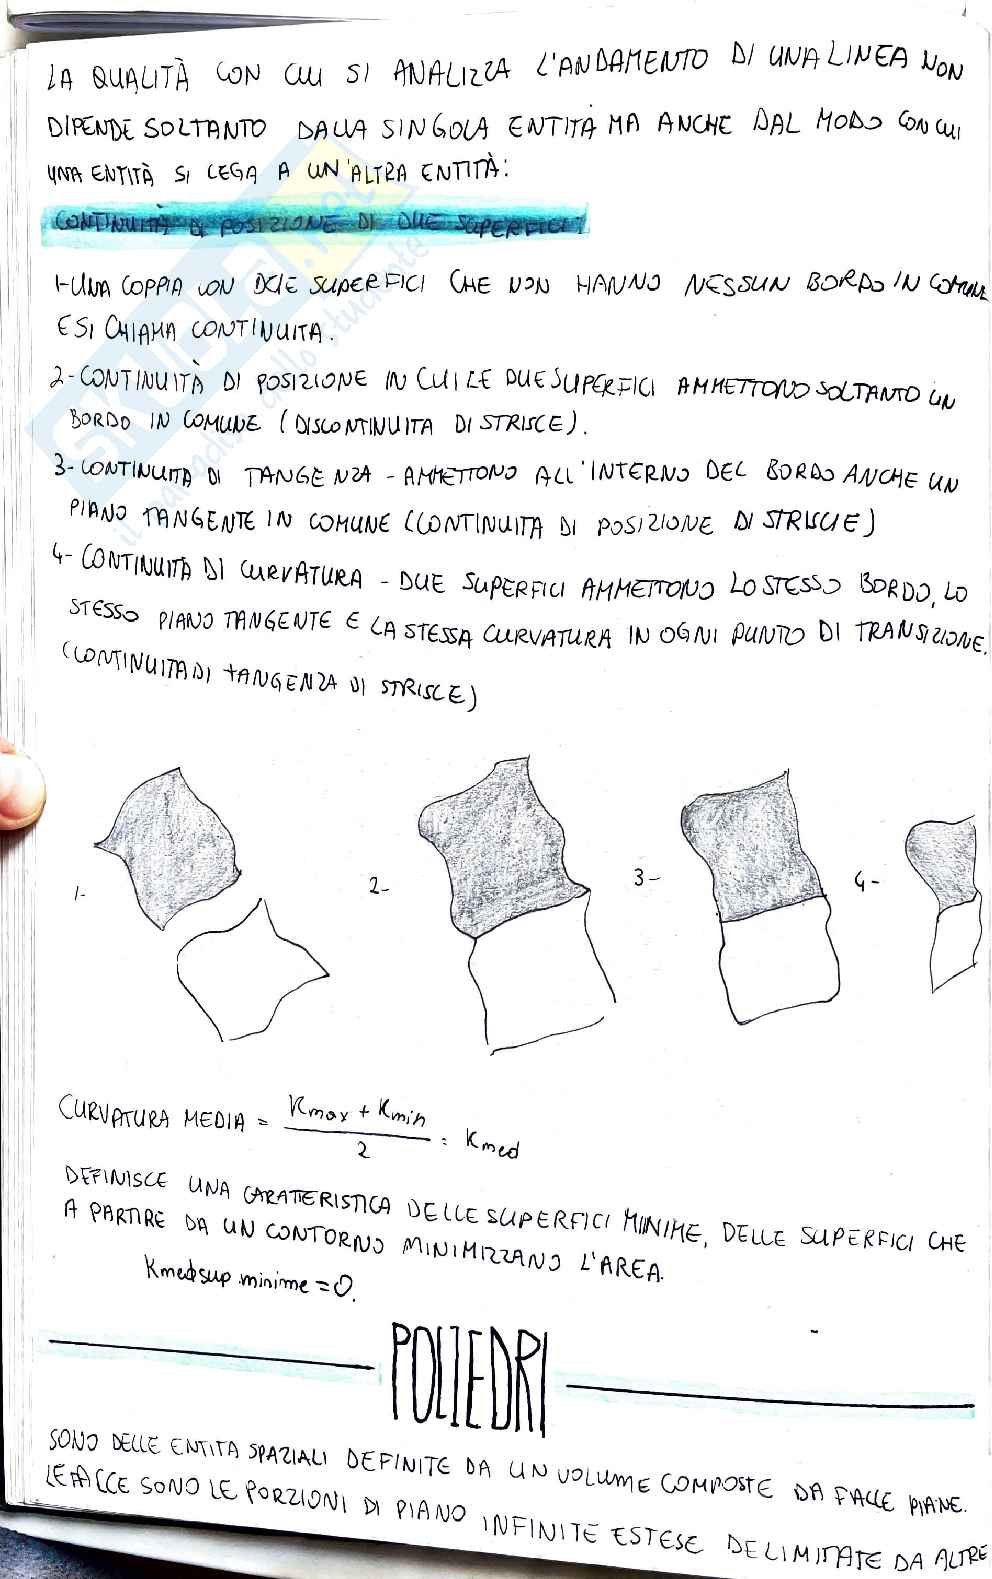 LA QUALITÀ CON CUI SI ANALIZZA L'ANDAMENTO DI UNA LINEA NON
DIPENDE SOLTANTO DALLA SINGOLA ENTITÀ MA ANCHE DAL MODO CON CUI
UNA ENTITÀ SI LEGA A UN'ALTRA ENTITÀ:
CONTINUITÀ DI POSIZIONE DI DUE SUPERFICI
1-UNA COPPIA CON SUPERFICI CHE NON HANNO NESSUN BORDO IN COMUNE
E SI CHIAMA CONTINUITA.
2-CONTINUITÀ DI POSIZIONE IN CUI LE DUE SUPERFICI AMMETTONO SOLTANTO UN
BORDO IN COMUNE (DISCONTINUITA DI STRISCE).
3-CONTINUITA DI TANGENZA - AMMETTONO ALL'INTERNO DEL BORDO ANCHE UN
PIANO TANGENTE IN COMUNE (CONTINUITA DI POSIZIONE DI STRISCIE)
4-CONTINUITA DI CURVATURA - DUE SUPERFICI AMMETTONO LO STESSO BORDO, LO
STESSO PIANO TANGENTE E LA STESSA CURVATURA IN OGNI PUNTO DI TRANSIZIONE.
(CONTINUITA DI TANGENZA DI STRISCE)
1-
2-
3-
4-
CURVATURA MEDIA = Kmax + Kmin / 2 = Kmed
DEFINISCE UNA CARATTERISTICA DELLE SUPERFICI MINIME, DELLE SUPERFICI CHE
A PARTIRE DA UN CONTORNO MINIMIZZANO L'AREA.
Kmed sup.minime = 0.
POLIEDRI
SONO DELLE ENTITA SPAZIALI DEFINITE DA UN VOLUME COMPOSTE DA FACCE PIANE.
LE FACCE SONO LE PORZIONI DI PIANO INFINITE ESTESE DELIMITATE DA ALTRE
SKUOLA.net
il paradiso dello studente